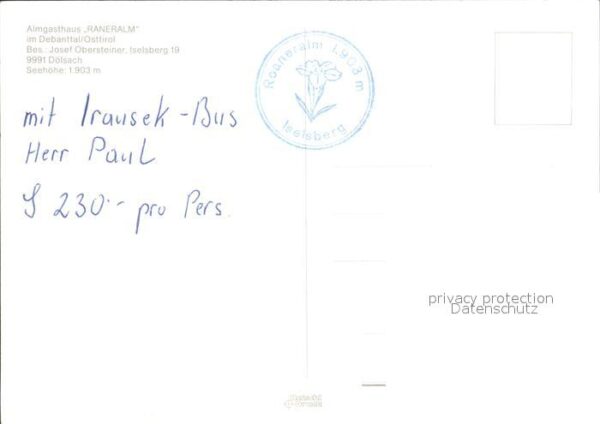 Almgasthaus „RANERALM"
im Debanttal/Osttirol
Bes.: Josef Obersteiner, Iselsberg 19
9991 Dölsach
Seehöhe: 1.903 m
Roaneralm 1.903 m
Iselsberg
mit Irausek-Bus
Herr Paul
S 230.- pro Pers.
privacy protection
Datenschutz